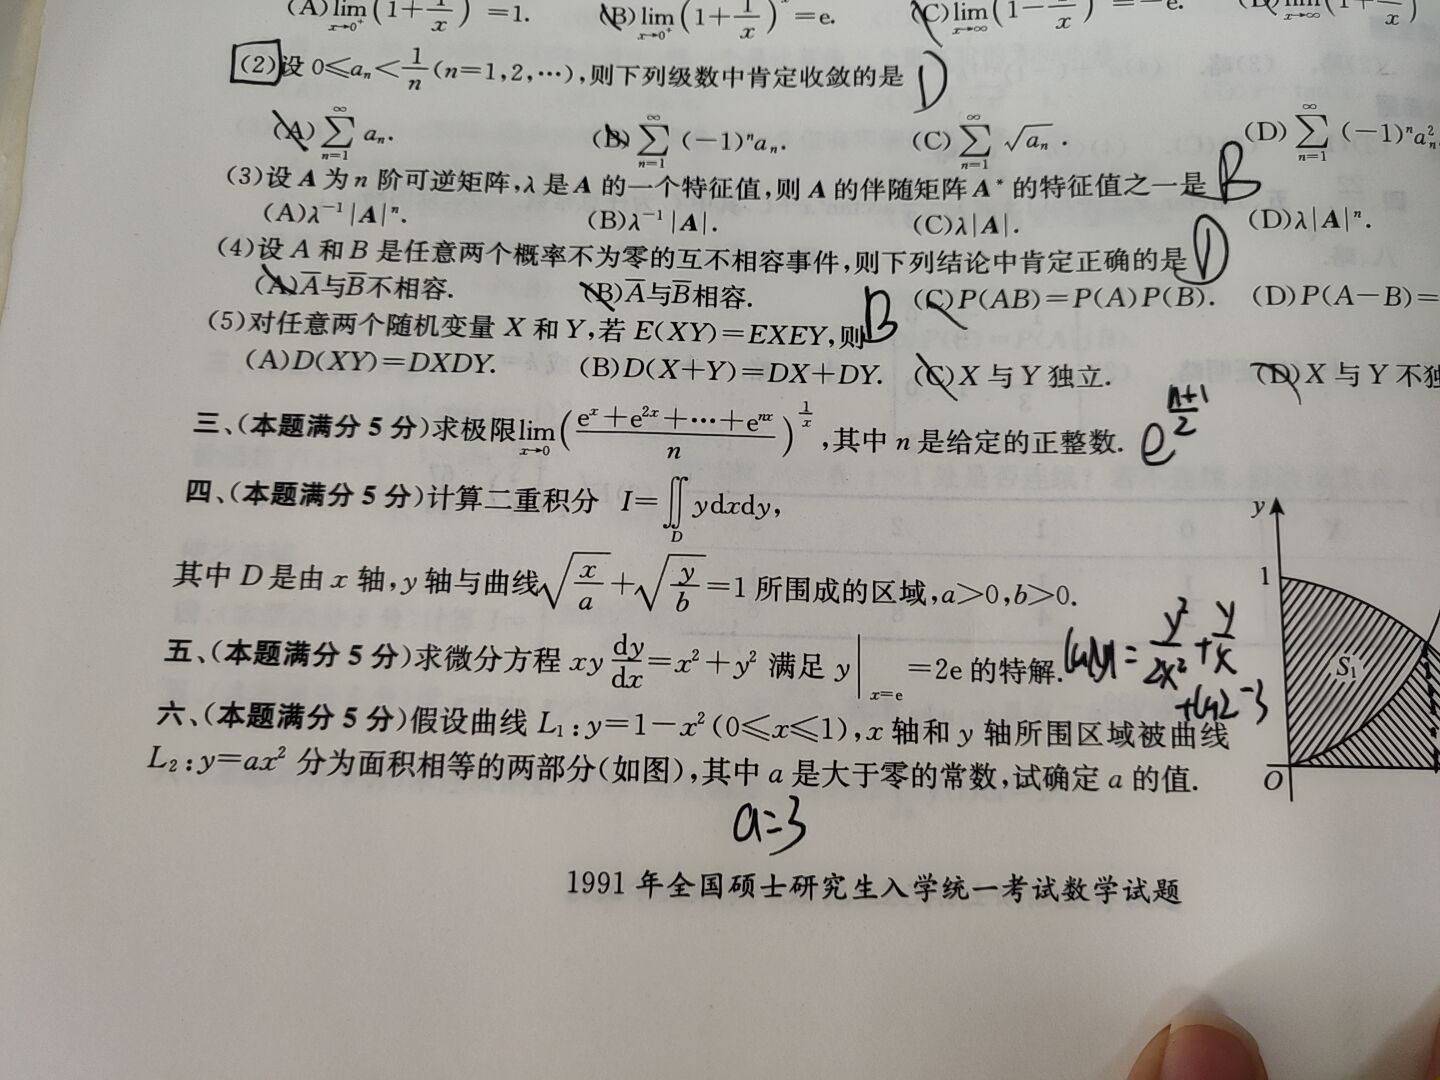 (A)lim x→0⁺ (1+1/x) =1. (B)lim x→0⁺ (1+1/x)ˣ=e. (C)lim x→∞ (1− x) =−e. lim x→∞
(2)设 0≤aₙ<1/n(n=1,2,⋯),则下列级数中肯定收敛的是 D
(A)∑_{n=1}^{∞} aₙ. (B)∑_{n=1}^{∞} (−1)ⁿaₙ. (C)∑_{n=1}^{∞} √aₙ. (D)∑_{n=1}^{∞} (−1)ⁿaₙ²
(3)设 A 为 n 阶可逆矩阵,λ 是 A 的一个特征值,则 A 的伴随矩阵 A* 的特征值之一是 B
(A)λ⁻¹|A|ⁿ. (B)λ⁻¹|A|. (C)λ|A|. (D)λ|A|ⁿ.
(4)设 A 和 B 是任意两个概率不为零的互不相容事件,则下列结论中肯定正确的是 D
(A)A̅与B̅不相容. (B)A̅与B̅相容. (C)P(AB)=P(A)P(B). (D)P(A−B)=
(5)对任意两个随机变量 X 和 Y,若 E(XY)=EXEY,则 B
(A)D(XY)=DXDY. (B)D(X+Y)=DX+DY. (C)X 与 Y 独立. (D)X 与 Y 不独
三、(本题满分 5 分)求极限lim x→0 ((eˣ+e²ˣ+⋯+eⁿˣ)/n)^{1/x},其中 n 是给定的正整数. e^{(n+1)/2}
四、(本题满分 5 分)计算二重积分 I=∬_D ydxdy,
其中 D 是由 x 轴,y 轴与曲线√(x/a)+√(y/b)=1 所围成的区域,a>0,b>0.
五、(本题满分 5 分)求微分方程 xy dy/dx=x²+y² 满足 y|_{x=e}=2e 的特解. ln|y|=y²/2x²+y/x
+ln2−3
六、(本题满分 5 分)假设曲线 L₁:y=1−x²(0≤x≤1),x 轴和 y 轴所围区域被曲线
L₂:y=ax² 分为面积相等的两部分(如图),其中 a 是大于零的常数,试确定 a 的值.
a=3
y
1
S₁
O
1991 年全国硕士研究生入学统一考试数学试题